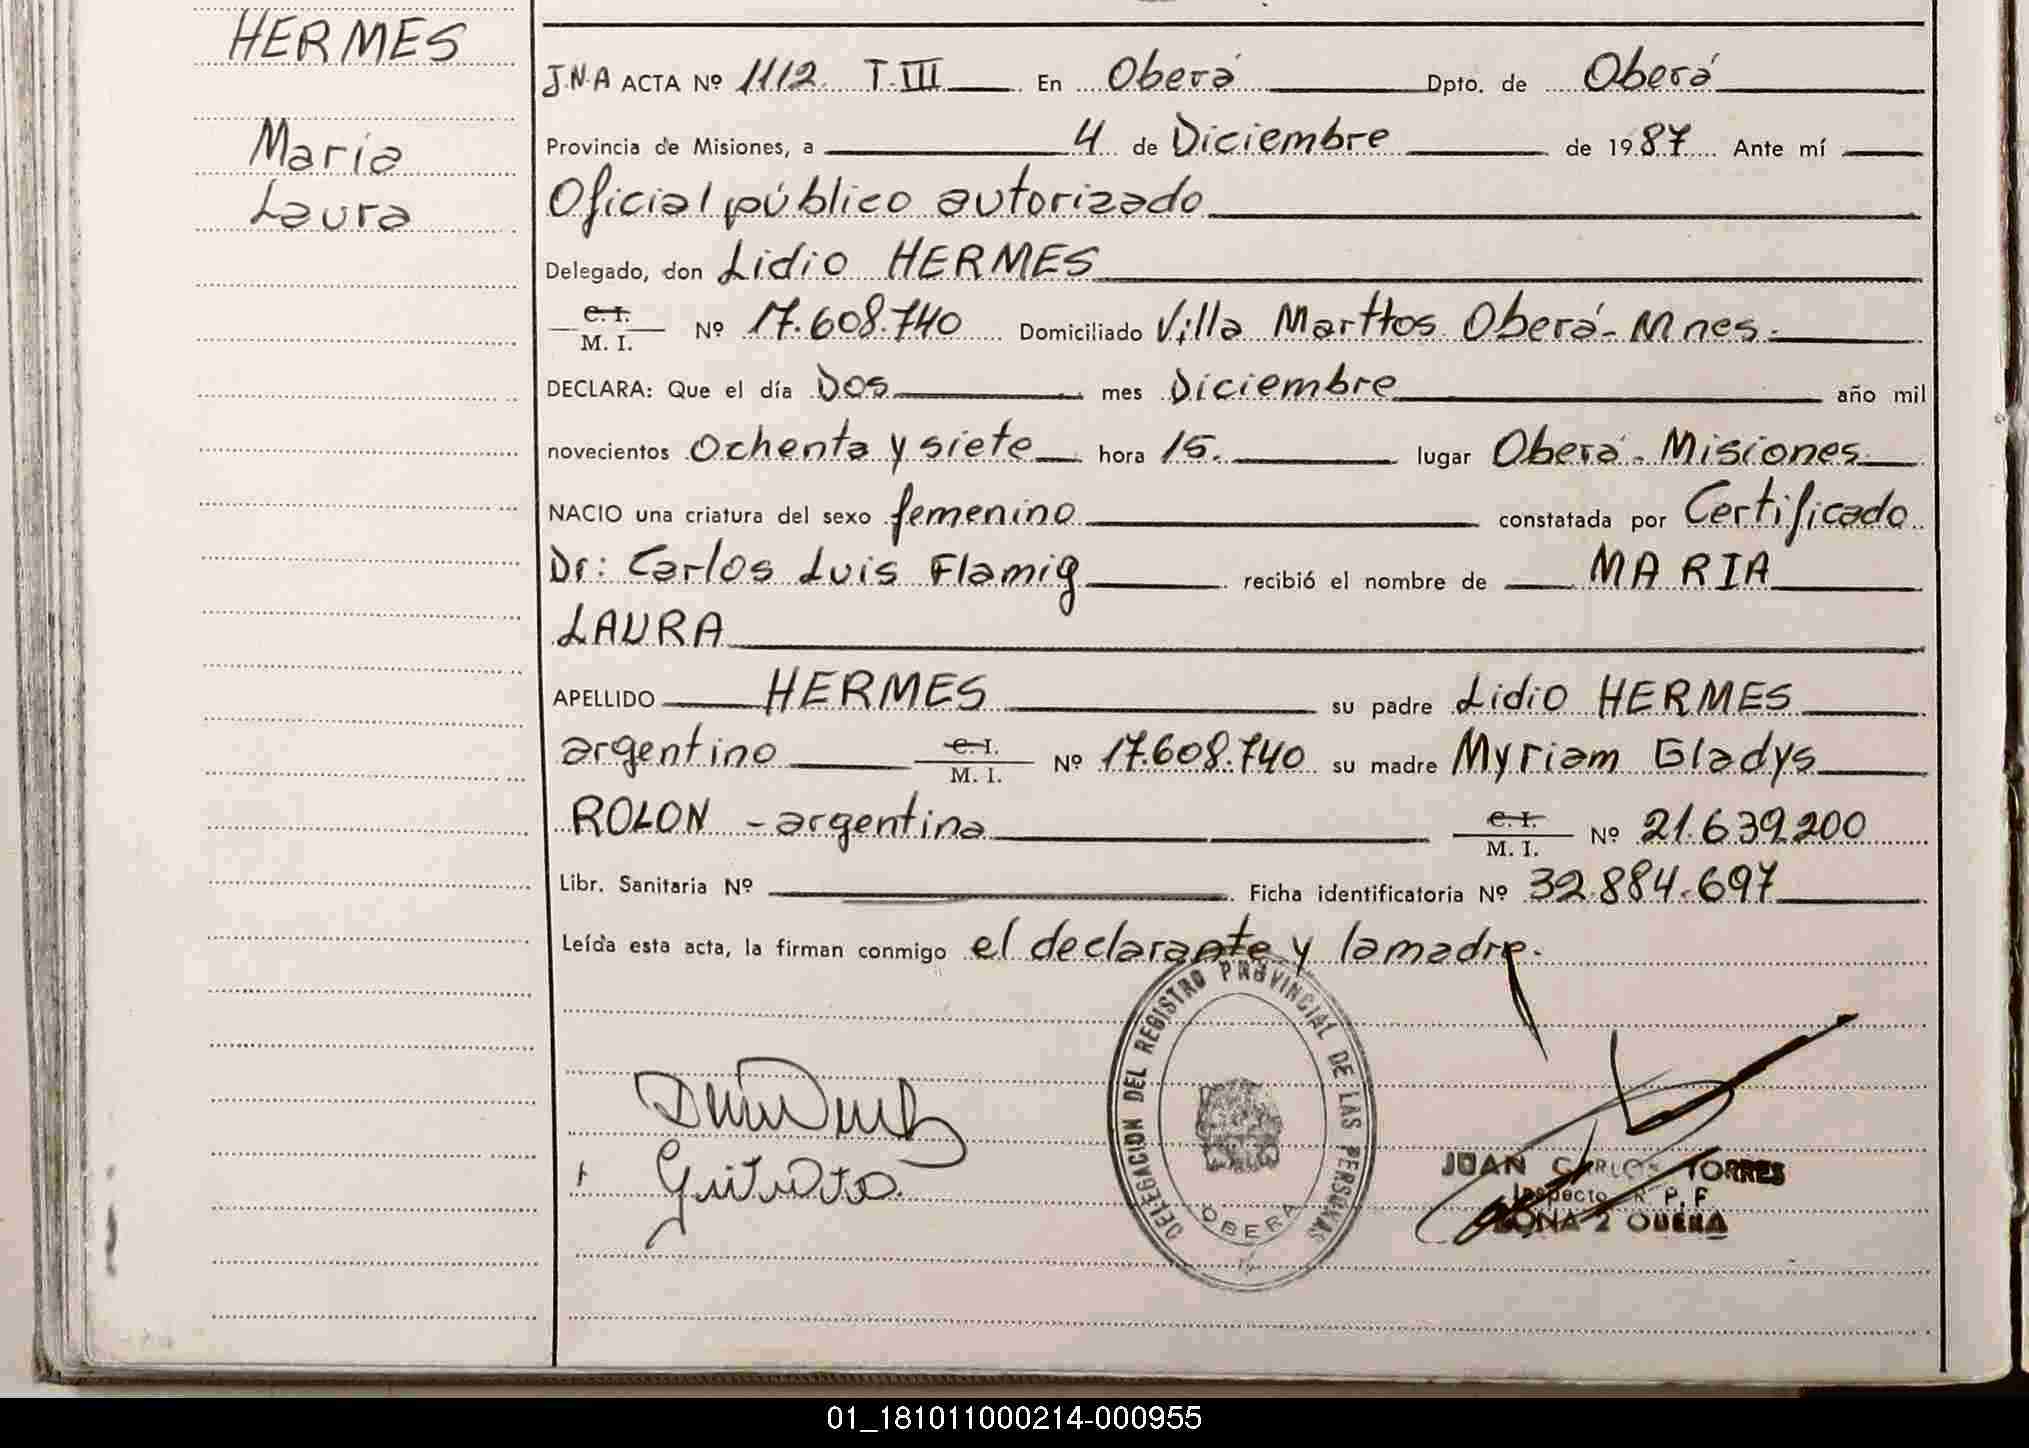 HERMES
María
Laura
J.N.A ACTA Nº 1112. T.III En Oberá Dpto. de Oberá
Provincia de Misiones, a 4 de Diciembre de 1987 Ante mí
Oficial público autorizado
Delegado, don Lidio HERMES
C.I.
M. I. Nº 17.608.740 Domiciliado Villa Marttos Oberá-Mnes.
DECLARA: Que el día Dos mes Diciembre año mil
novecientos Ochenta y siete hora 15. lugar Oberá-Misiones
NACIO una criatura del sexo femenino constatada por Certificado
Dr: Carlos Luis Flamig recibió el nombre de MARIA
LAURA
APELLIDO HERMES su padre Lidio HERMES
argentino C.I.
M. I. Nº 17.608.740 su madre Myriam Gladys
ROLON - argentina C.I.
M. I. Nº 21.639.200
Libr. Sanitaria Nº Ficha identificatoria Nº 32.884.697
Leída esta acta, la firman conmigo el declarante y la madre.
DELEGACION DEL REGISTRO PROVINCIAL DE LAS PERSONAS
OBERA
JUAN CARLOS TORRES
Inspector R.P.F
ZONA 2 OBERA
01_181011000214-000955